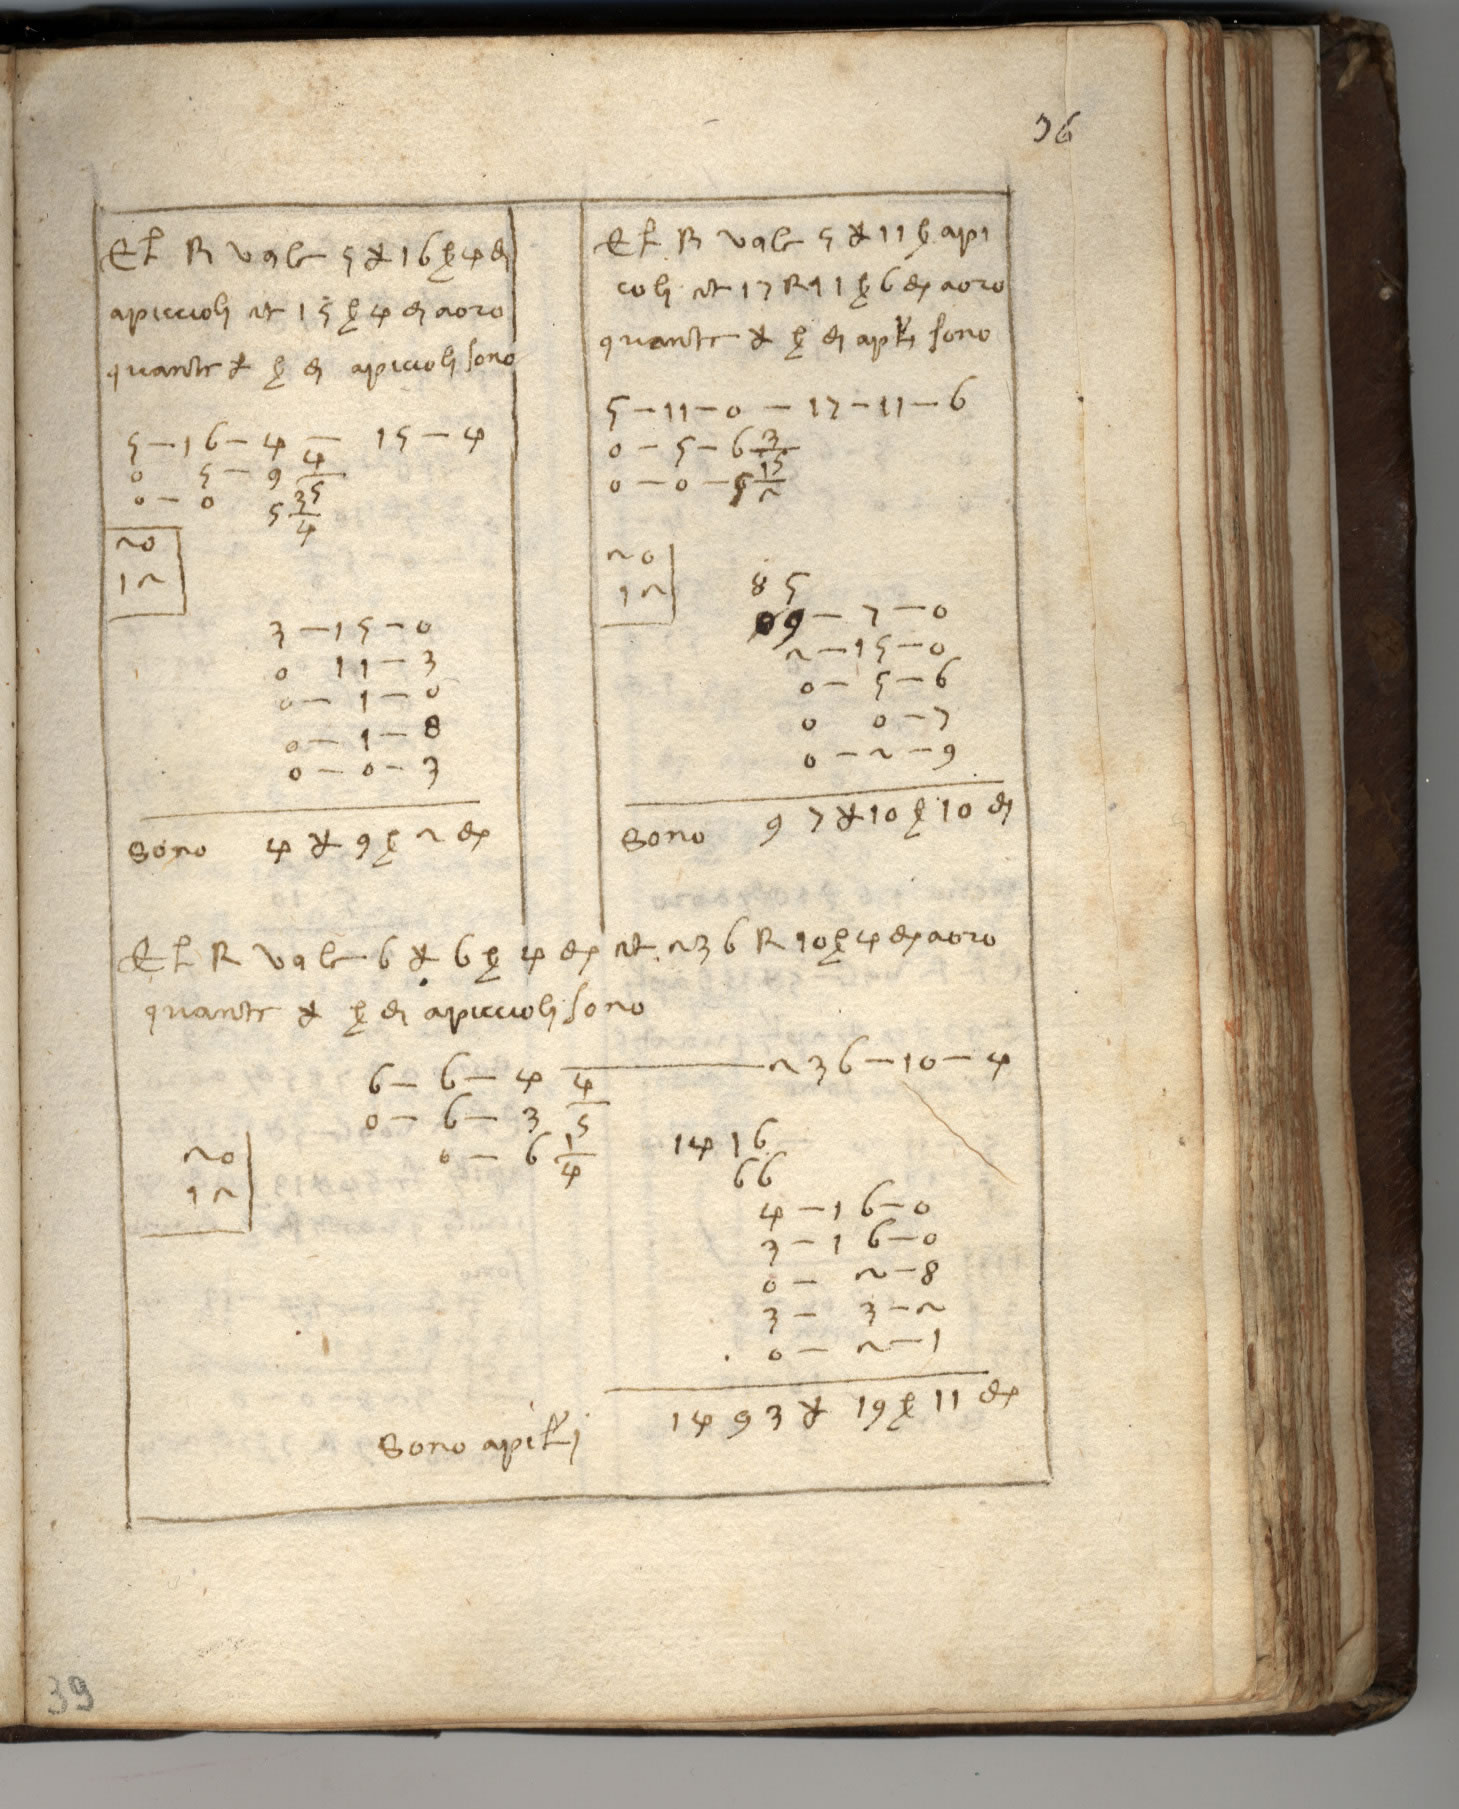 36
El ℞ vale 5 ₤ 16 ß 4 đ
apiccioli et 15 ß 4 đ aoro
quante ₤ ß đ apiccioli sono
5 — 16 — 4 — 15 — 4
0 5 — 9 4/5
0 — 0 5 3/4
20
12
3 — 15 — 0
0 11 — 3
0 — 1 — 0
0 — 1 — 8
0 — 0 — 3
Sono 4 ₤ 9 ß 2 đ
El ℞ vale 5 ₤ 11 ß api
coli et 17 ℞ 11 ß 6 đ aoro
quante ₤ ß đ apli sono
5 — 11 — 0 — 17 — 11 — 6
0 — 5 — 6 3/5
0 — 0 — 5 1/2
20
12
85
09 — 7 — 0
2 — 15 — 0
0 — 5 — 6
0 0 — 7
0 — 2 — 9
Sono 97 ₤ 10 ß 10 đ
El ℞ vale 6 ₤ 6 ß 4 đ et 236 ℞ 10 ß 4 đ aoro
quante ₤ ß đ apiccioli sono
6 — 6 — 4 — 236 — 10 — 4
0 — 6 — 3 4/5
0 — 6 1/4
20
12
1416
66
4 — 16 — 0
3 — 16 — 0
0 — 2 — 8
3 — 3 — 2
0 — 2 — 1
Sono apili 1493 ₤ 19 ß 11 đ
39